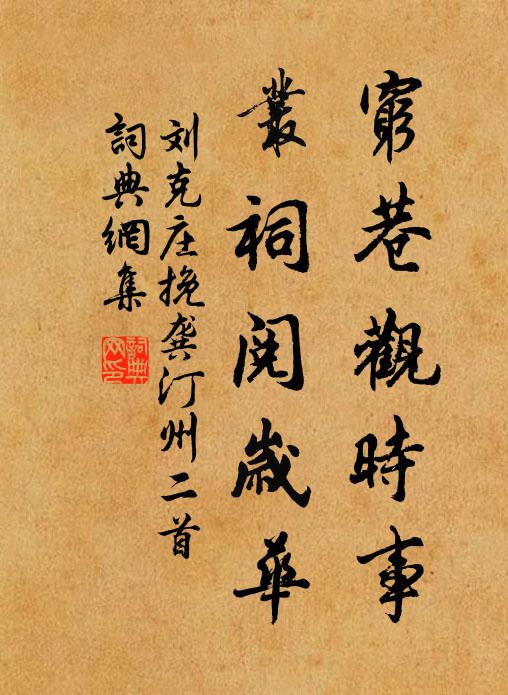 窮巷觀時事
叢祠閱歲華
刘克庄挽龚汀州二首
詞典網集
詞典
网印